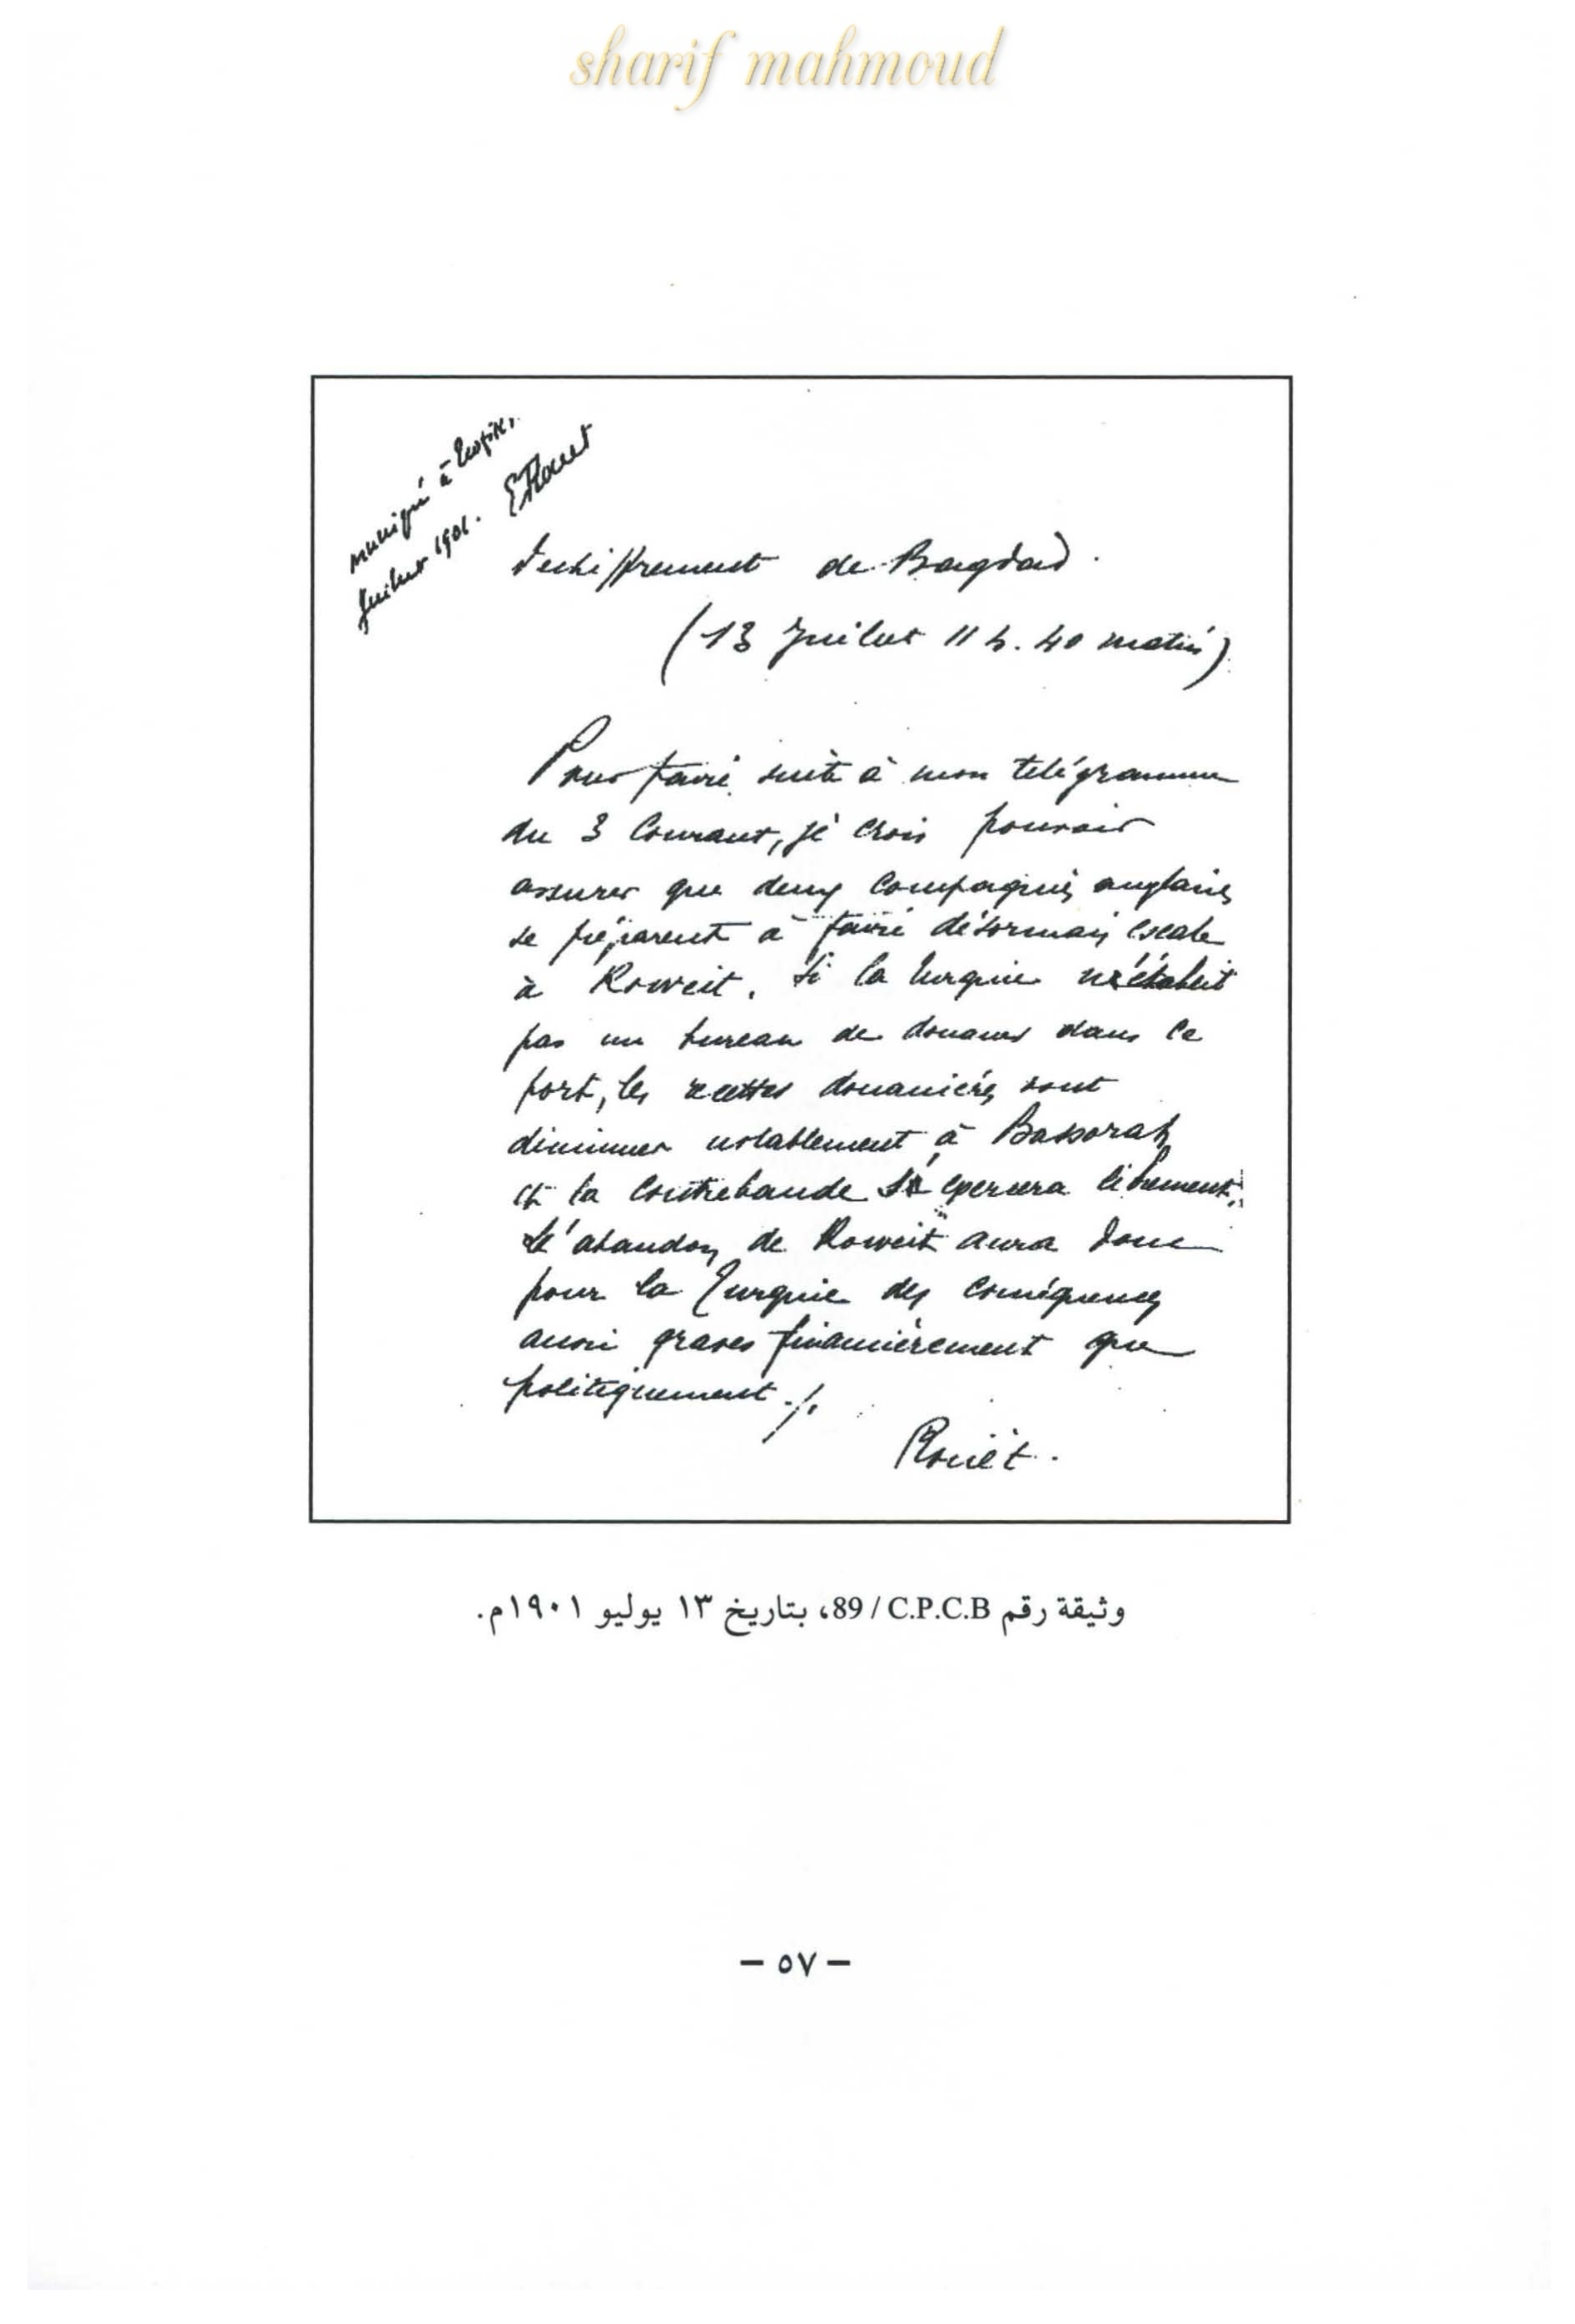 sharif mahmoud
juillet 1901.
dechiffrement de Bagdad.
(13 Juillet 11 h. 40 matin)
Pour faire suite à mon télégramme
du 3 Courant, je crois pouvoir
assurer que deux Compagnies anglaises
se préparent à faire désormais escale
à Koweit. Si la Turquie n'établit
pas un bureau de douanes dans ce
port, les recettes douanières vont
diminuer notablement à Bassorah
et la Contrebande s'exercera librement.
L'abandon de Koweit aura donc
pour la Turquie des Conséquences
aussi graves financièrement que
politiquement ./.
Rouët.
وثيقة رقم 89 / C.P.C.B، بتاريخ ١٣ يوليو ١٩٠١م.
– ٥٧ –